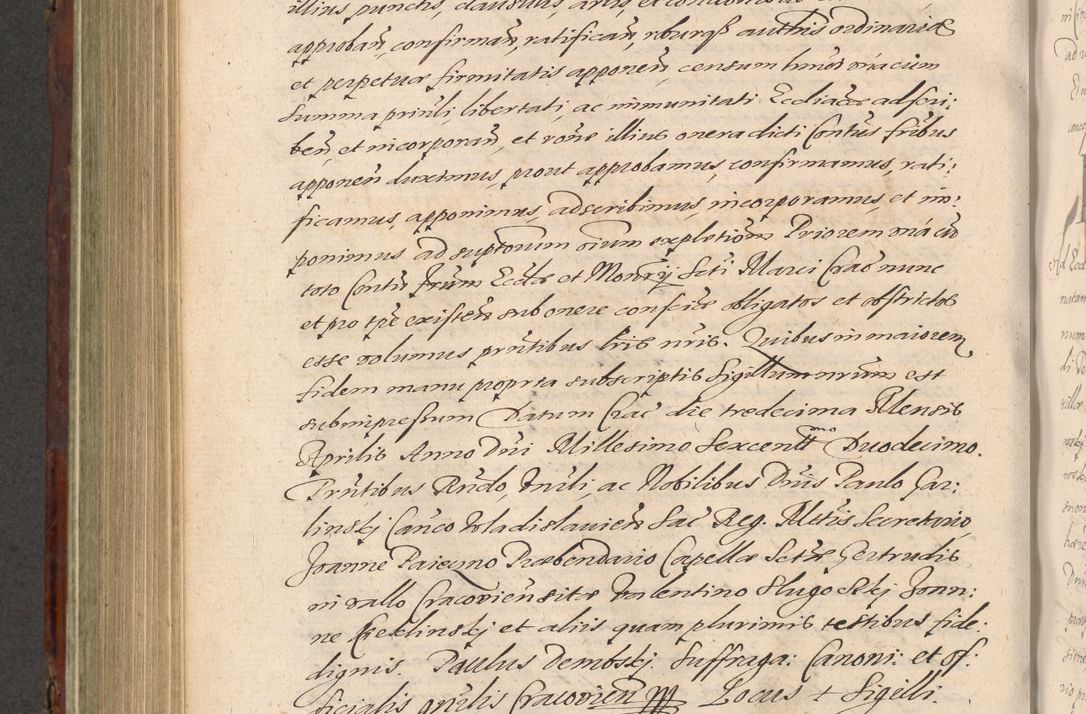 illius punctis, clausulis, artis, et conditionibus
approbañ, confirmañ, ratificañ, roburqȝ authis ordinariæ
et perpetuæ firmitatis apponeñ, censum hmõi ma cum
summa prinli libertati, ac immunitati Ecclicæ adscri:
beñ, et incorporañ, et rone illius onera dicti Contus fribus
apponeñ duximus, prout approbamus, confirmamus, rati:
ficamus, apponimus, adscribimus, incorporamus, et im:
ponimus ad suptorum oium expletiom Priorem ma cũ
toto Contu frum Eccłæ et Monrÿ Scti Marci Craõ nunc
et pro tpe existeñ sub onere consciæ obligatos et obstrictos
esse volumus prñtibus lris nris. Quibus in maiorem
fidem manu propria subscriptis Sigillum nrum est
subimpressum Datum Crac die tredecima Mensis
Aprilis Anno Dñi Millesimo Sexcentmo Duodecimo.
Prñtibus Rndo, Vnrli, ac Nobilibus Dñis Paulo Gar:
linskj Canco Wladislavieñ Sac Reg. Mttis Secretario,
Joanne Paiecno Præbendario Capellæ Sctæ Gertrudis
in vallo Cracovieñ sitæ Valentino Slugockj Joan:
ne Cieklinskj et aliis quam plurimis testibus fide:
dignis. Paulus Dembskj Suffraga: Canoni: et of:
ficialis gnlis Cracovieñ Locus + Sigilli.